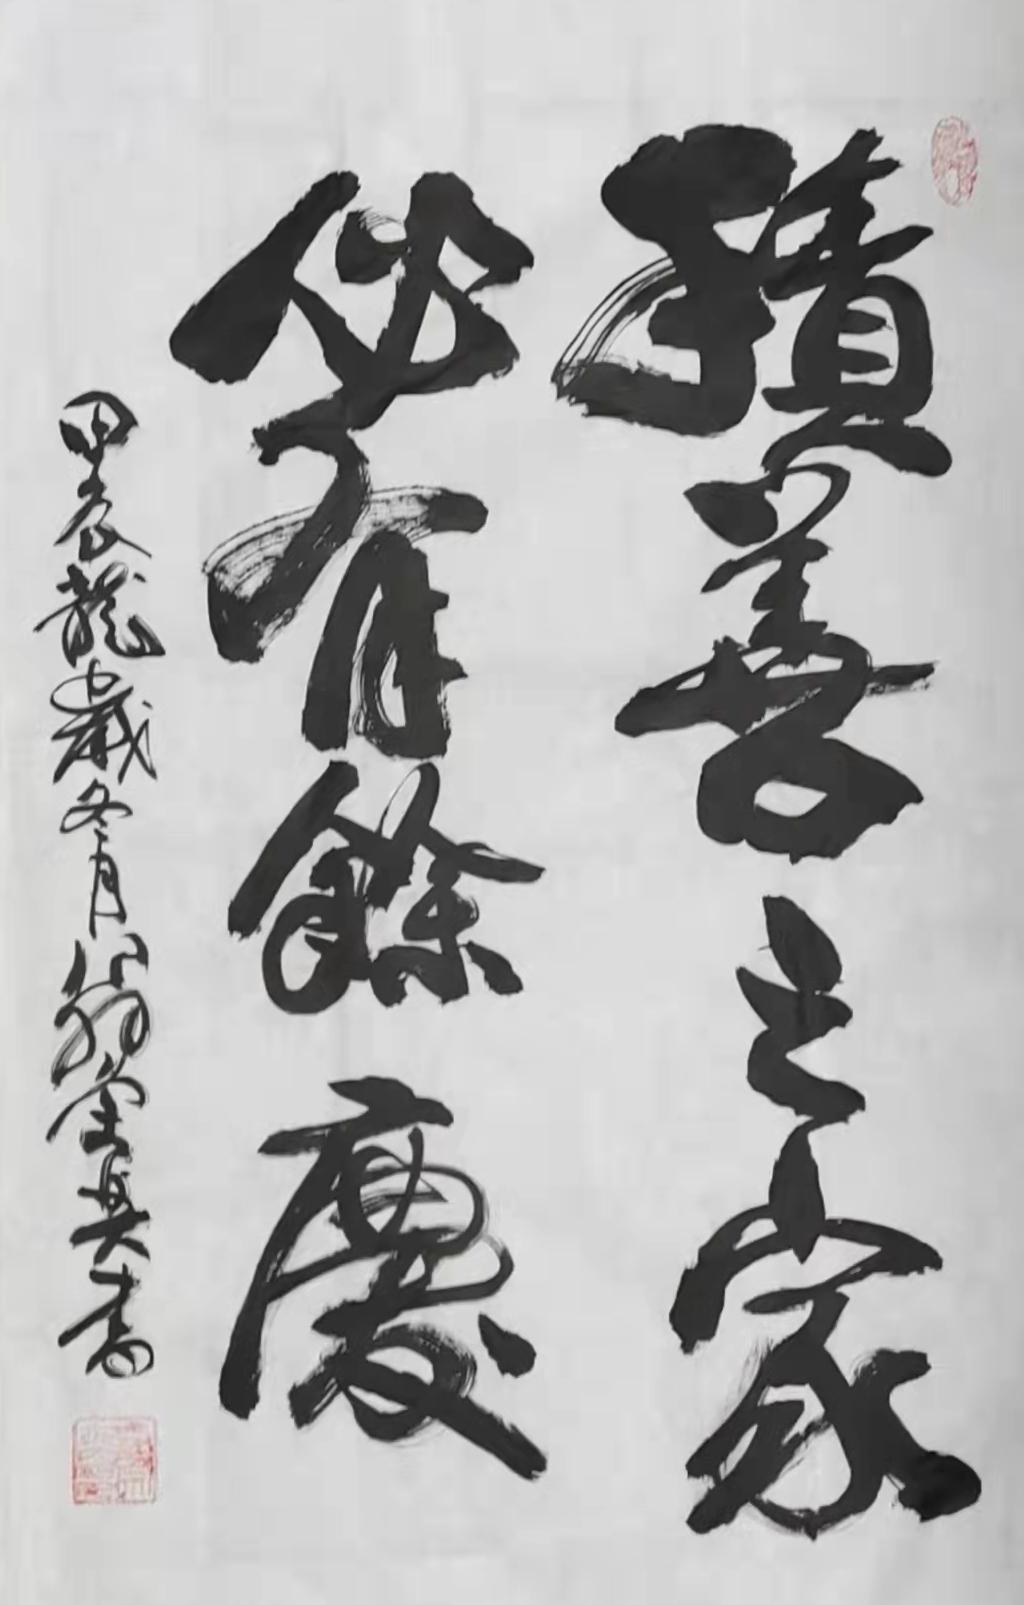 積善之家
必有餘慶
甲辰龍歲冬月 書